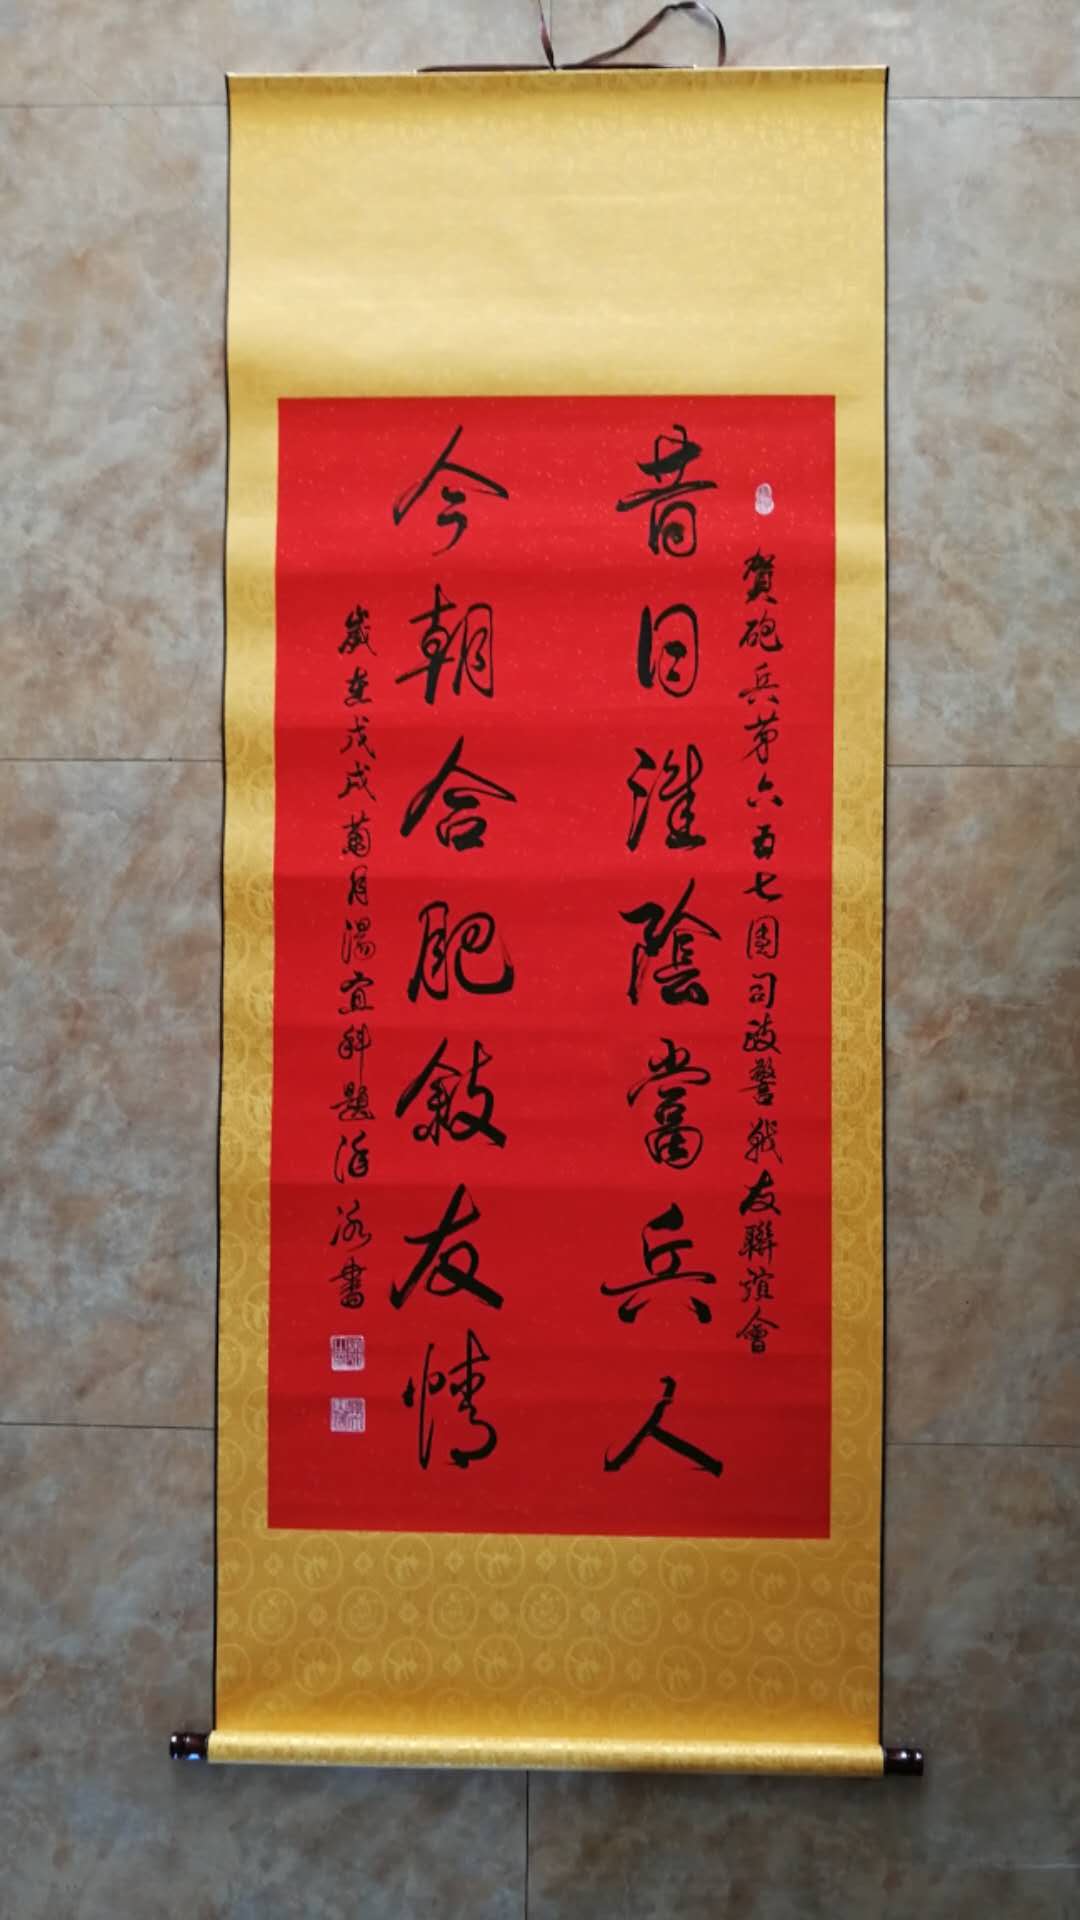 賀砲兵第六五七團司政警戰友聯誼會
昔日淮陰當兵人
今朝合肥敘友情
歲在戊戌菊月湯宜科題 泳書